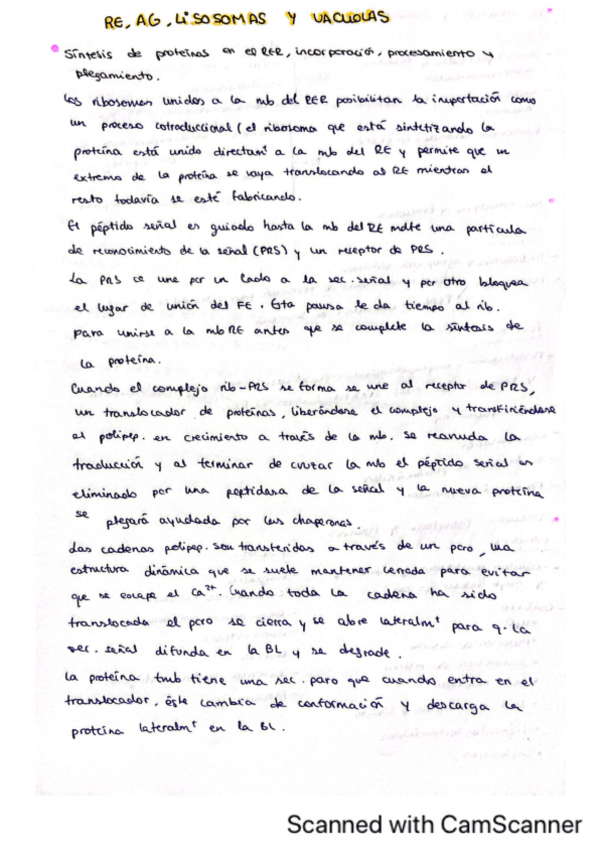 RE, AG, LISOSOMAS Y VACUOLAS
Síntesis de proteínas en el RER, incorporación, procesamiento y
plegamiento.
Los ribosomas unidos a la mb del RER posibilitan la importación como
un proceso cotraduccional (el ribosoma que está sintetizando la
proteína está unido directamt a la mb del RE y permite que un
extremo de la proteína se vaya translocando al RE mientras el
resto todavía se esté fabricando.
El péptido señal es guiado hasta la mb del RE mdte una partícula
de reconocimiento de la señal (PRS) y un receptor de PRS.
La PRS se une por un lado a la sec. señal y por otro bloquea
el lugar de unión del FE. Esta pausa le da tiempo al rib.
para unirse a la mb RE antes que se complete la síntesis de
la proteína.
Cuando el complejo rib-PRS se forma se une al receptor de PRS,
un translocador de proteínas, liberándose el complejo y transfiriéndose
el polipep. en crecimiento a través de la mb. Se reanuda la
traducción y al terminar de cruzar la mb el péptido señal es
eliminado por una peptidasa de la señal y la nueva proteína
se plegará ayudada por las chaperonas.
Las cadenas polipep. son transferidas a través de un poro, una
estructura dinámica que se suele mantener cerrada para evitar
que se escape el Ca²⁺. Cuando toda la cadena ha sido
translocada el poro se cierra y se abre lateralmt para q. la
sec. señal difunda en la BL y se degrade.
La proteína tmb tiene una sec. paro que cuando entra en el
translocador, éste cambia de conformación y descarga la
proteína lateralmt en la BL.
Scanned with CamScanner